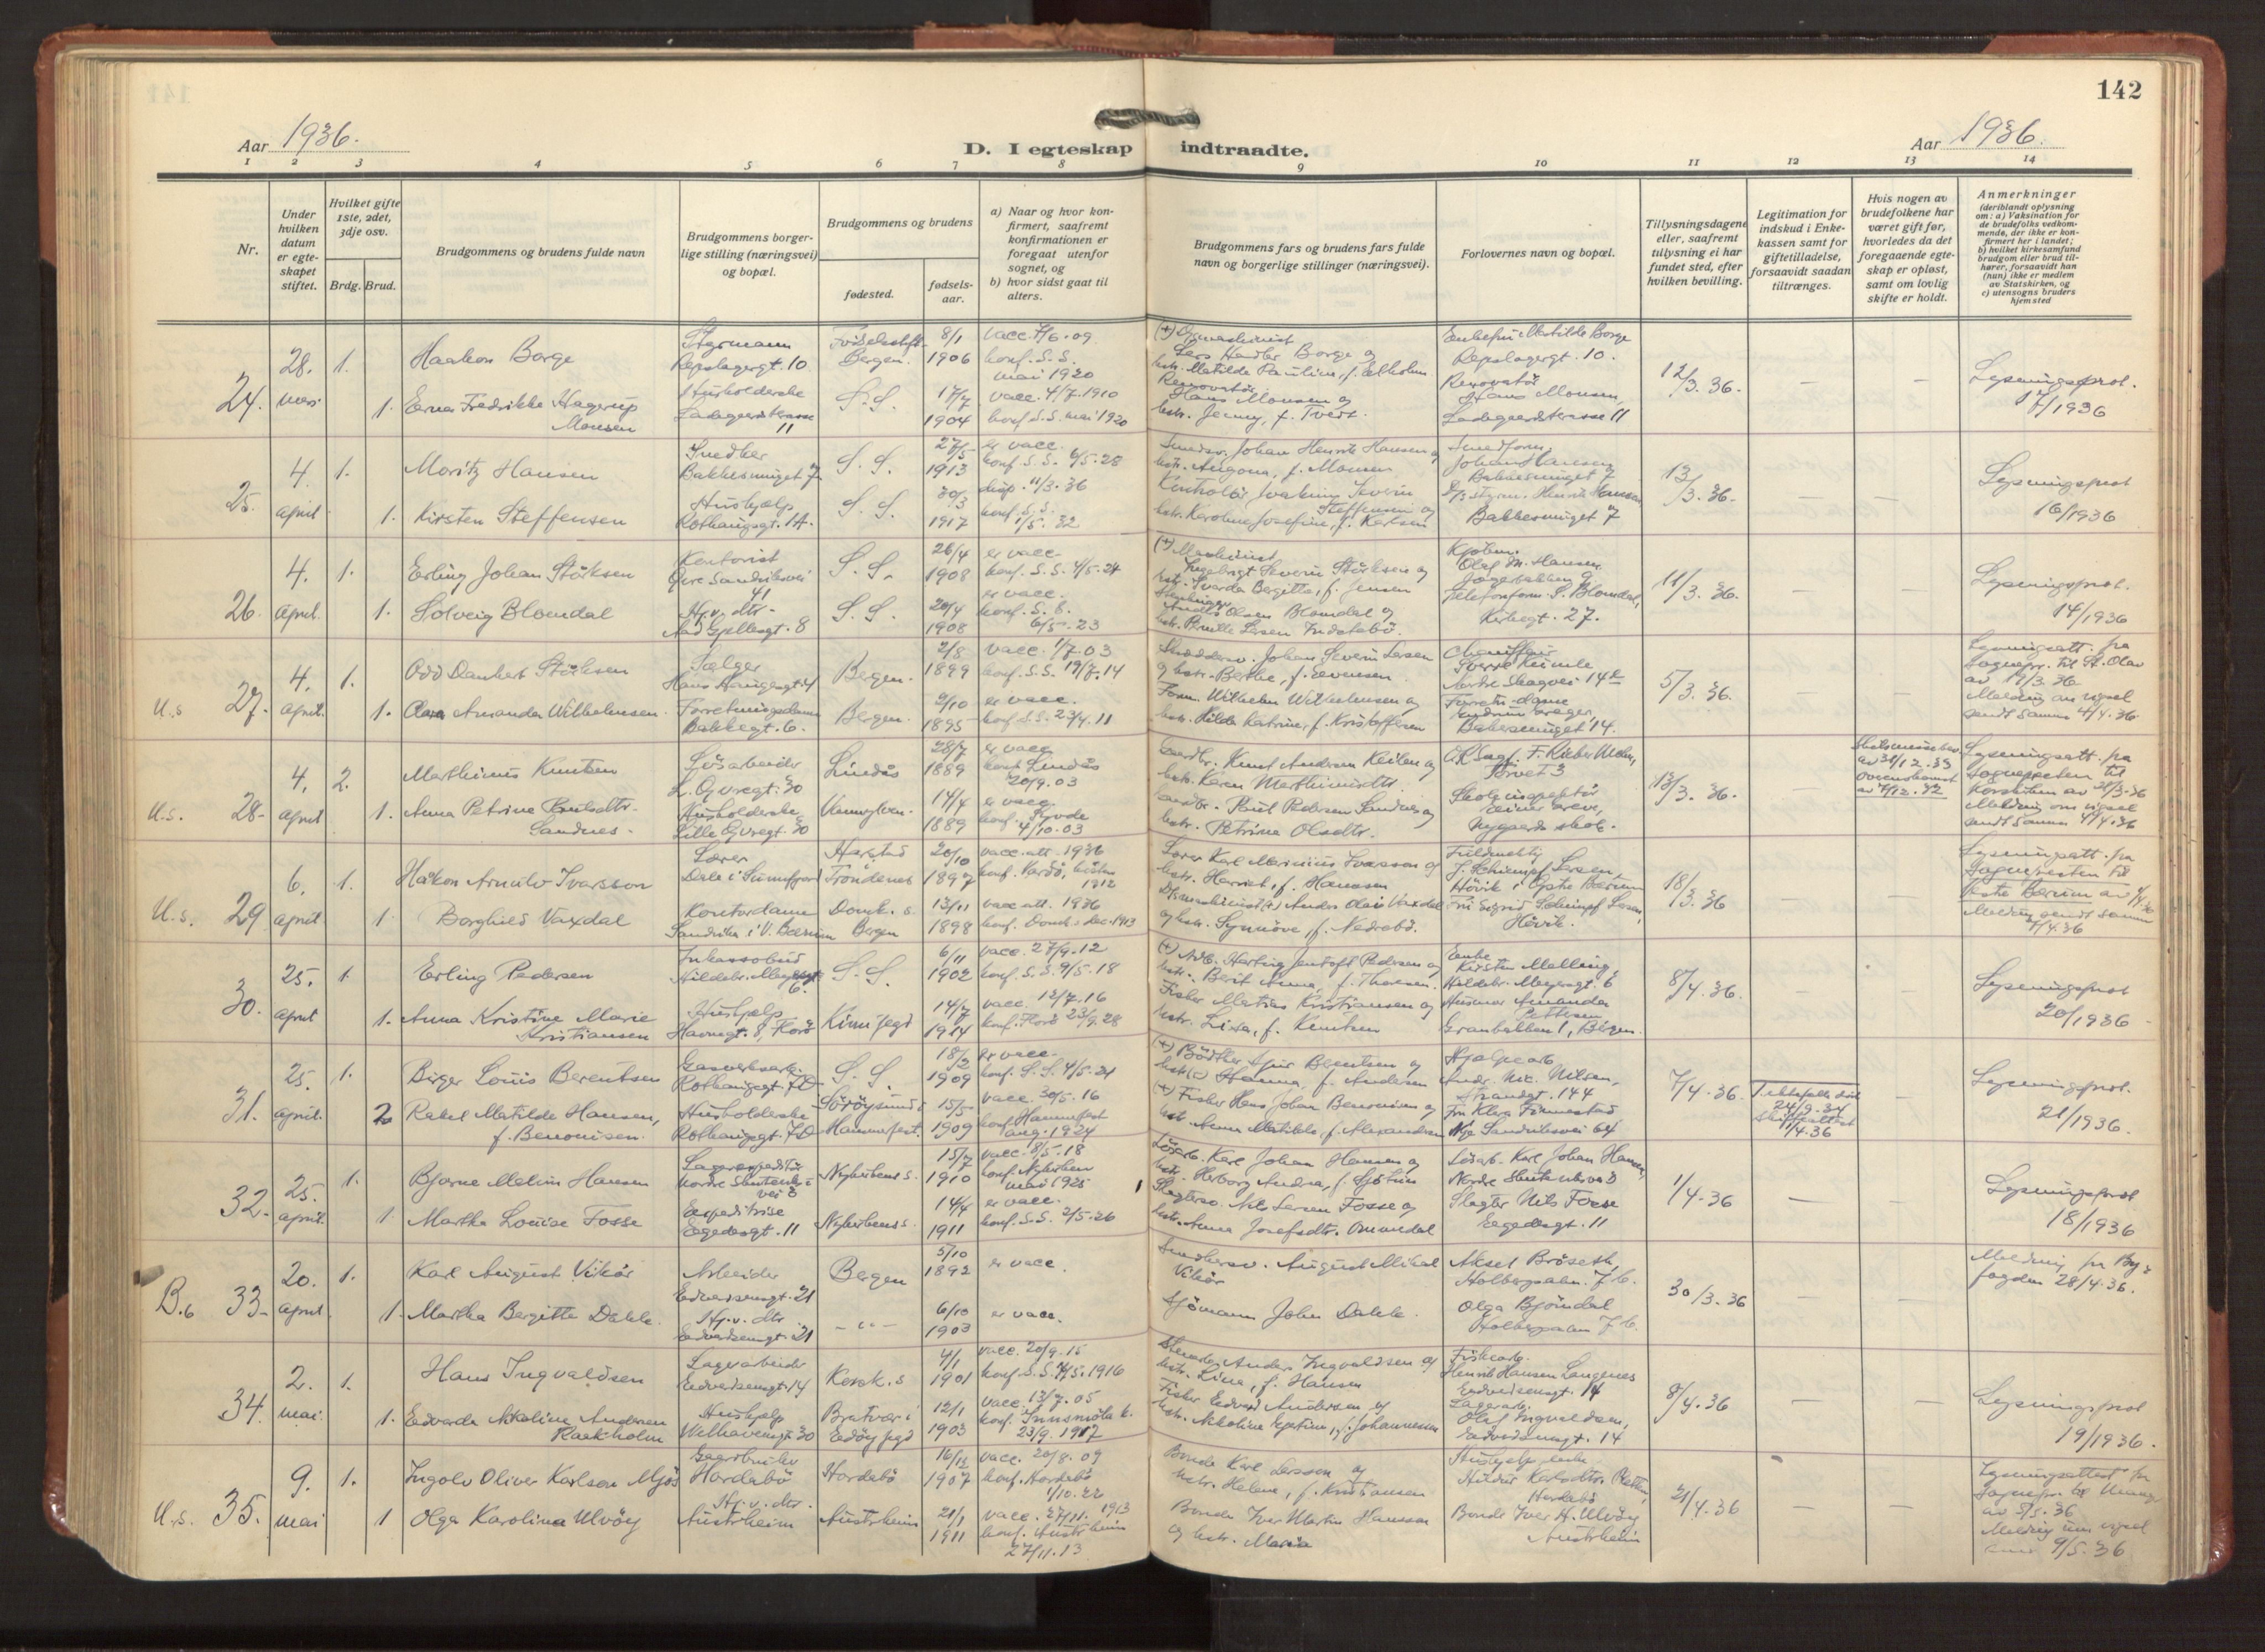 142
Aar 1936.
D. I egteskap indtraadte.
Aar 1936.
1 2 3 4 5 6 7 8 9 10 11 12 13 14
Nr.
Under hvilken datum er egteskapet stiftet.
Hvilket gifte 1ste, 2det, 3dje osv.
Brdg. Brud.
Brudgommens og brudens fulde navn
Brudgommens borgerlige stilling (næringsvei) og bopæl.
Brudgommens og brudens
fødested.
fødselsaar.
a) Naar og hvor konfirmert, saafremt konfirmationen er foregaat utenfor sognet, og
b) hvor sidst gaat til alters.
Brudgommens fars og brudens fars fulde navn og borgerlige stillinger (næringsvei).
Forlovernes navn og bopæl.
Tillysningsdagene eller, saafremt tillysning ei har fundet sted, efter hvilken bevilling.
Legitimation for indskud i Enkekassen samt for giftetilladelse, forsaavidt saadan tiltrænges.
Hvis nogen av brudefolkene har været gift før, hvorledes da det foregaaende egteskap er opløst, samt om lovlig skifte er holdt.
Anmerkninger
(deriblandt oplysning om: a) Vaksination for de brudefolks vedkommende, der ikke er konfirmert her i landet; b) hvilket kirkesamfund brudgom eller brud tilhører, forsaavidt han (hun) ikke er medlem av Statskirken, og c) utensogns bruders hjemsted
24. 28. mars 1. Haakon Borge
Styrmann Repslagergt. 10
Fødselsstift. Bergen. 8/1 1906
vacc. 7/6.09 konf. S.S. mai 1920
Lars Borge og hstr. Matilde Pauline, f.
Enkefru Matilde Borge Repslagergt. 10.
12/3. 36. — —
Lysningsprot. 17/1936
1. Erna Fredrikke Hagerup Monsen
Husholderske Ladegaardsterasse 11
S.S. 17/7 1904
vacc. 4/7.1910 konf. S.S. mai 1920
Renovatør Hans Monsen og hstr. Jenny, f. Tvedt.
Renovatør Hans Monsen, Ladegaardsterasse 11
25. 4. april 1. Moritz Hansen
Snedker Bakkesmuget 7
S.S. 27/5 1913
er vacc. konf. S.S. 6/5.28
Johan Henrik Hansen og hstr. Angona, f. Monsen
Smedform. Johan Hansen Bakkesmuget 7
13/3. 36. — —
Lysningsprot 16/1936
1. Kirsten Steffensen
Hushjelp Rothaugsgt. 1A.
S.S. 30/3 1917
disp. 11/3.36 konf. S.S. 1/5.32
Kontrolør Joakim Severin Steffensen og hstr. Karoline Josefine, f. Karlsen
Henrik Hansen, Bakkesmuget 7
26. 4. april 1. Erling Johan Störksen
Kontorist Övre Sandviksvei 41
S.S. 26/4 1908
er vacc. konf. S.S. 4/5.24
(+) Maskinist Ingebrigt Severin Störksen og hstr. Svarda Bergitte, f. Jensen
Kjøbm. Olaf M. Hansen Jægerbakken 9
11/3. 36. —
Lysningsprot. 14/1936
1. Solveig Blomdal
Hj.v. dtr. Aad Gjellesgt. 8
S.S. 20/4 1908
er vacc. konf. S.S. 6/5.23
Anders Olsen Blomdal og hstr. Pernille Larsen Indstebö.
Telefonform. S. Blomdal, Kirkegt. 27.
U.s 27. 4. april. 1. Odd Danbert Störksen
Sælger Hans Haugesgt. 41
Bergen. 2/8 1899
vacc. 1/7.03 konf. S.S. 19/7.14
Johan Severin Larsen og hstr. Berthe, f. Evensen.
Chauffør Sverre Kimle Nordre Skagevei 14
5/3. 36.
Lysningsatt. fra Sognepr. til St. Olav av 19/3.36 Melding om vigsel sendt samme 4/4.36
1. Clara Amanda Wilhelmsen.
Forretningsdame Bakkegt. 6.
Bergen. 9/10 1895
er vacc. konf. S.S. 23/4.11
Form. Wilhelm Wilhelmsen og hstr. Hilda Katrine, f. Kristoffersen
Forretn.dame Bakkesmuget 14.
U.s. 28. 4. april 2. Marthinus Knutsen
Løsarbeider L. Øvregt. 30
Lindås 28/7 1889
er vacc. konf. Lindås 20/9.03
Gaardbr. Knut Andersen Keilen og hstr. Karen Marthinusdtr.
O.R.sagf. F. Kieber Mohn, Torvet 3
13/3. 36. —
Skilsmissebev. av 30/12.33 Overenskomst av 7/12.32
Lysningsatt. fra sognepresten til Korskirken av 28/3.36 Melding om vigsel sendt samme 4/4.36
1. Anna Petrine Paulsdtr. Sandnes.
Husholderske Lille Øvregt. 30
Vannylven. 14/4 1889
er vacc. konf. Syvde 4/10.03
Gaardbr. Paul Pedersen Sandnes og hstr. Petrine Olsdtr.
Skoleinspektør Einar Greve, Nygaards skole.
U.s. 29 6. april 1. Håkon Arnulv Ivarsson
Lærer Dale i Sunnfjord
Harstad Trondenes 20/10 1897
vacc.att. 1936 konf. Vardø, høsten 1912
Lærer Karl Marinius Ivarsson og hstr. Harriet, f. Hanssen
Fuldmektig J. Schiempf Larsen, Høvik i Østre Bærum
18/3. 36 — —
Lysningsatt. fra Sognepresten til Vestre Bærum av 4/4.36 Melding sendt samme 7/4.36
1. Borghild Vaxdal
Kontordame Sandvika i V. Bærum
Domk. s. Bergen 13/11 1898
vacc.att. 1936 konf. Domk.s dec. 1913
Anders Olai Vaxdal og hstr. Synnöve, f. Nedrebö.
Fru Sigrid Schiempf Larsen, Høvik.
30. 25. april 1. Erling Pedersen
Inkassobud Hildebr. Meyersgt 6.
S.S. 6/11 1902
vacc. 27/9.12 konf. S.S. 9/5.18
(+) Arb. Harting Jentoft Pedersen og hstr. Berit Anna, f. Thoresen.
Enke Kirsten Melling, Hildebr. Meyersgt. 6
8/4. 36. — —
Lysningsprot 20/1936
1. Anna Kristine Marie Kristiansen
Hushjelp Havnegt. 8, Florö
Kinn pgd 14/7 1914
vacc. 12/7.16 konf. Florö 23/9.28
Fisker Matias Kristiansen og hstr. Lisa, f. Knutsen
Husmor Amanda Pettersen Granbakken 1, Bergen.
31. 25. april. 1. Birger Louis Berentsen
Gasverksarb. Rothaugsgt. 7D
S.S. 18/2 1909
er vacc. konf. S.S. 4/5.24
(+) Bödtker Sjur Berentsen og hstr. (+) Hanna, f. Andersen
Hjelpearb. Andr. Nic. Nilsen, Strandgt. 144
7/4. 36
24/9.34 skifteattest 1/4.36
Lysningsprot. 21/1936.
2 Rakel Matilde Hansen, f. Benonisen.
Husholderske Rothaugsgt. 7D
Sørøysund i Hammerfest. 15/5 1909
vacc. 30/5.16 konf. Hammerfest aug. 1924
(+) Fisker Hans Johan Benonisen og hstr. Anna Matilde, f. Alexandersen
Fru Klara Finnestad Nye Sandviksvei 64
32. 25. april. 1. Bjarne Malvin Hansen
Lagerexpeditør Nordre Skutevik vei 8
Nykirkens s. 15/7 1910
vacc. 8/5.18 konf. Nykirken mai 1925
Løsarb. Karl Johan Hansen og hstr. Herborg Andrea, f. Sjöström
Løsarb. Karl Johan Hansen, Nordre Skuteviksvei 8
1/4. 36 — —
Lysningsprot 18/1936
1. Martha Louise Fosse
Expeditrise Egedesgt. 11
Nykirkens s. 14/4 1911
er vacc. konf. S.S. 2/5.26
Nils Larsen Fosse og hstr. Anna Josefsdtr. Omundal
Slagter Nils Fosse Egedesgt. 11
B.6 33. 20. april 1. Karl August Vikör
Arbeider Edvardsensgt. 21
Bergen 5/10 1892
er vacc.
Snedkersv. August Mikal Vikör
Aksel Bröseth, Holbergsalm. 7 b.
30/3. 36 — —
Melding fra Byfogden 28/4.36.
1. Martha Bergitte Dahle.
Hj.v. dtr. Edvardsensgt. 21
— " — 6/10 1903
er vacc.
Sjömann John Dahle.
Olga Björndal Holbergsalm 7 b.
34. 2. mai 1. Hans Ingvaldsen
Lagerarbeider Edvardsensgt. 14
Korsk. s 4/1 1901
vacc. 20/9.15 konf. S.S. 7/5.1916
Anders Ingvaldsen og hstr. Lina, f. Hansen
Fiskearb. Henrik Hansen Langenes Edvardsensgt. 14
8/4. 36 — —
Lysningsprot 19/1936.
1. Edvarda Nikoline Andersen Rackholm
Hushjelp Welhavensgt. 30
Bratvær i Edøy pgd 12/1 1903
vacc. 13/7.05 konf. Innsmöla k. 23/9.1917
Fisker Edvard Andersen og hstr. Nikoline Epetine, f. Johannessen
Lagerarb. Olaf Ingvaldsen, Edvardsensgt. 14
U.s. 35. 9. mai 1. Ingolv Oliver Karlsen Mjös
Gaardbruker Hordabö
Hordabö 16/12 1907
vacc. 20/8.09 konf. Hordabö 1/10.22
Bonde Karl Larsson og hstr. Helene, f. Kristiansen
Hushjelp, enke Hildur Karlsdtr. Hordabö
21/4. 36 — —
Lysningsattest fra Sognepr. til Manger av 5/5.36 Melding um vigsel 9/5.36
1 Olga Karolina Ulvöy
Hj.v. dtr. Austrheim
Austrheim 21/1 1911
vacc. 27/11.1913 konf. Austrheim 27/11.13
Bonde Iver Martin Hansson og hstr. Maria
Bonde Iver H. Ulvöy Austrheim